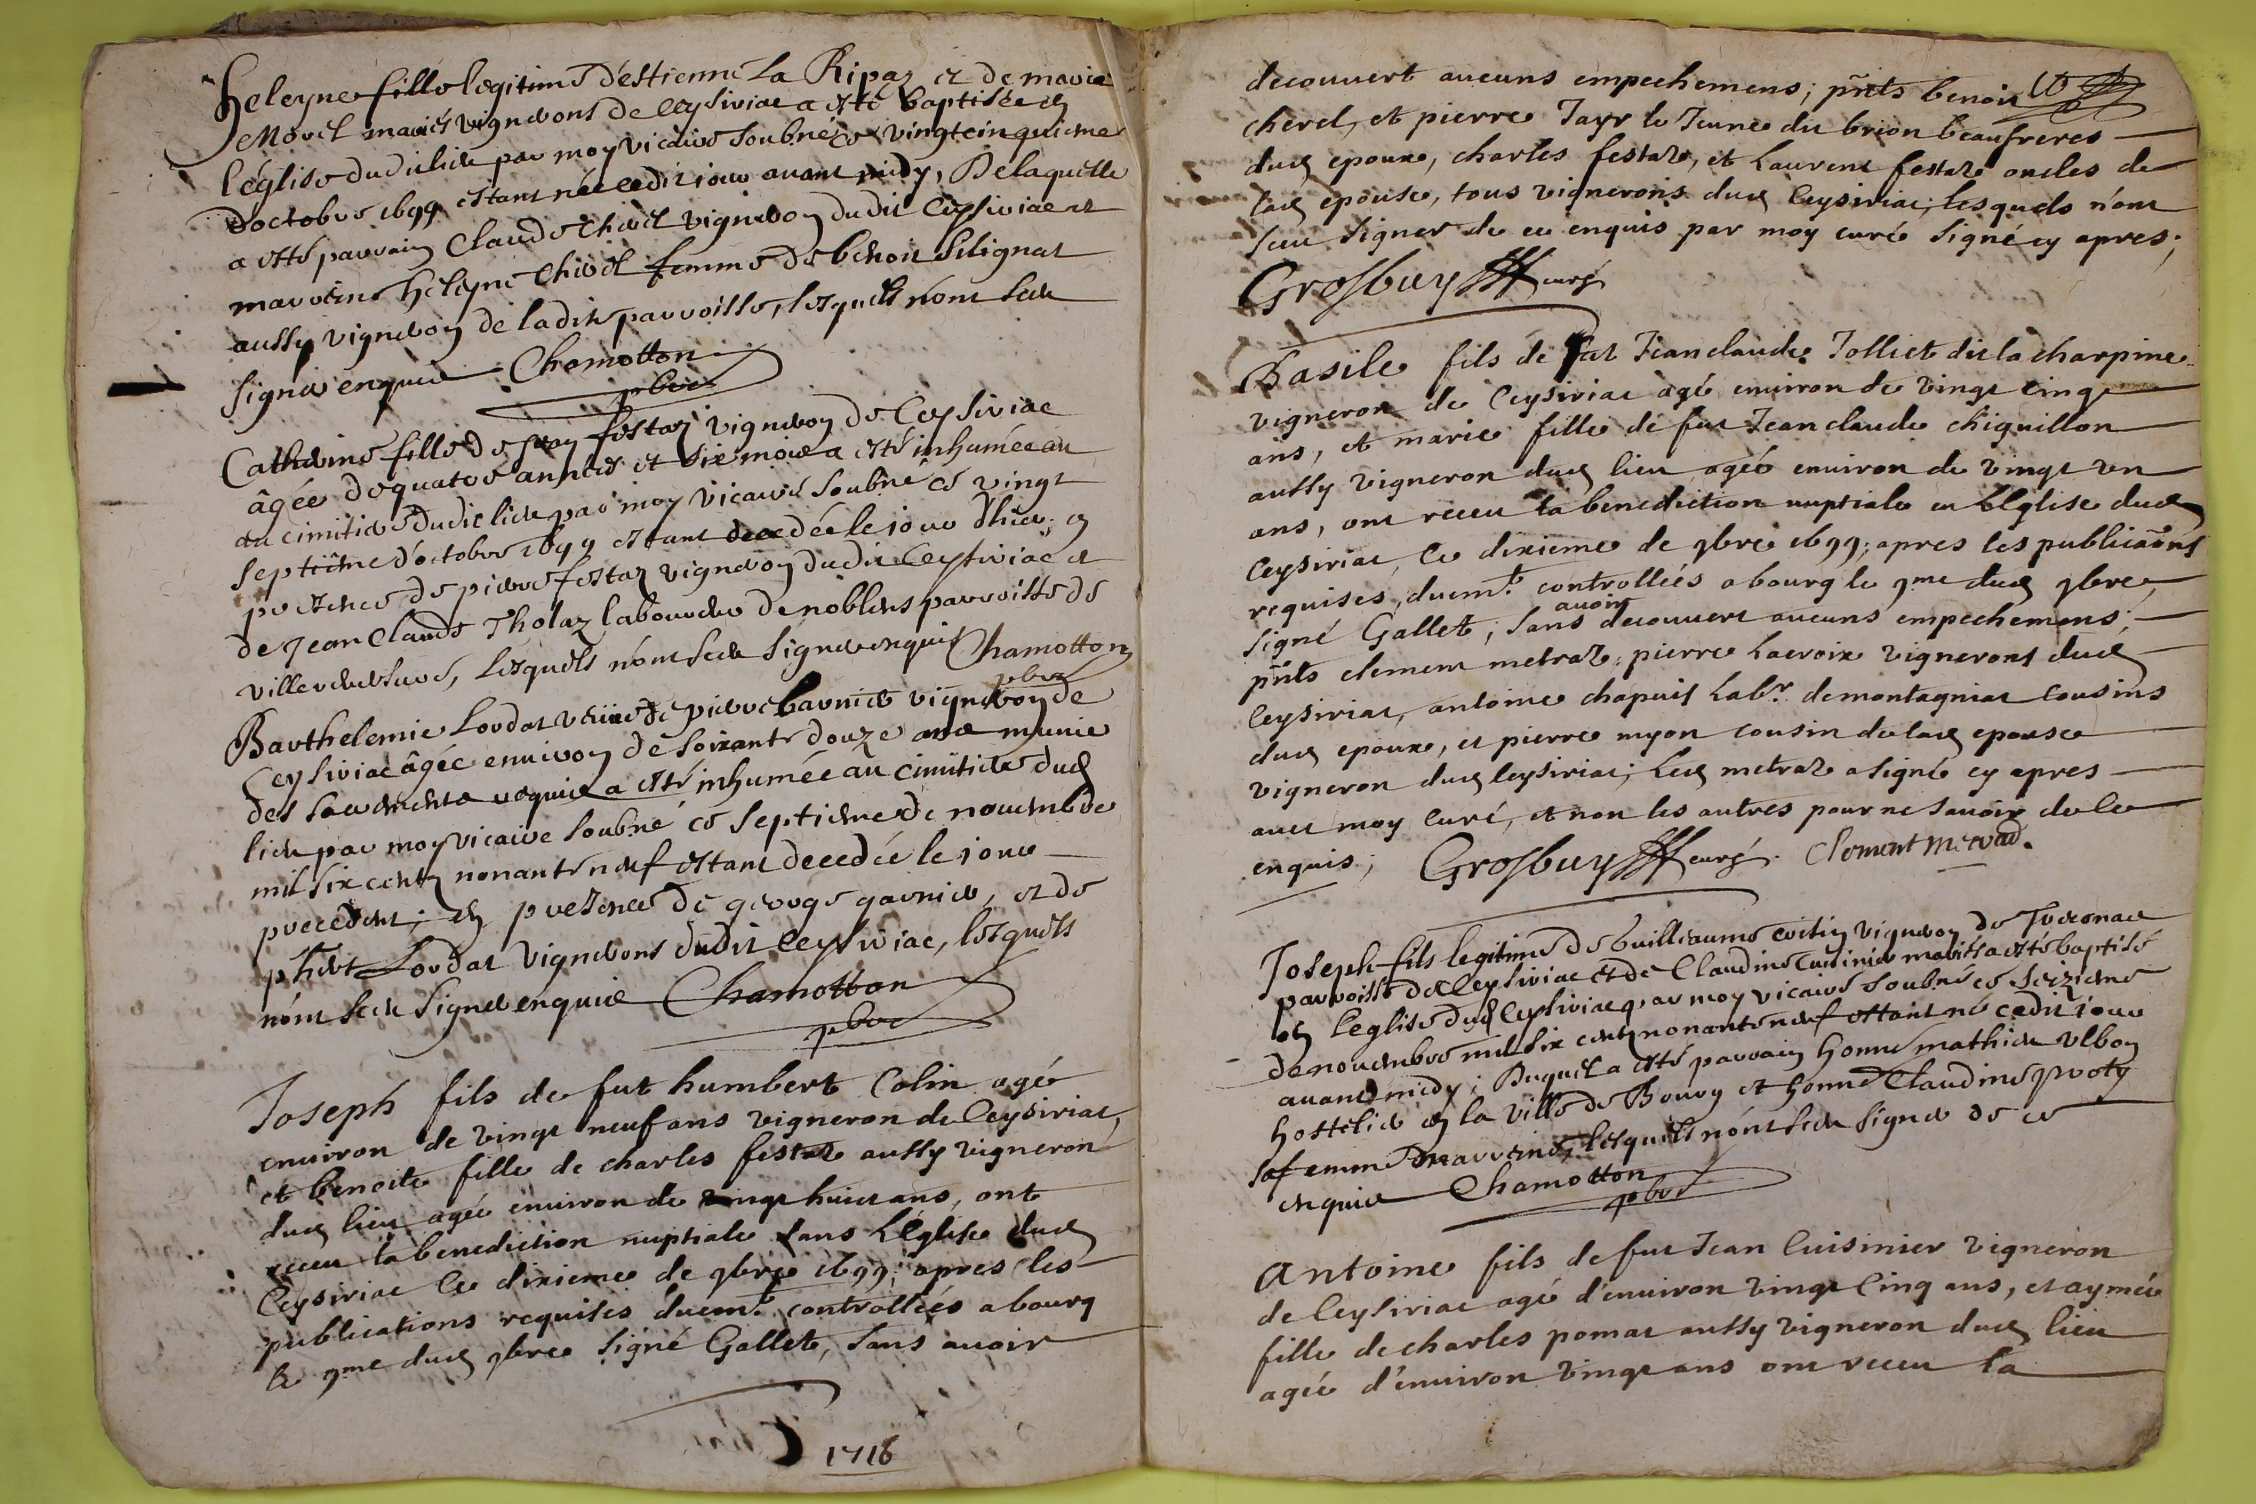 Heleyne fille legitime d'Estienne La Ripaz et de marie
Morel mariés vignerons de Ceysiriac a esté baptisée en
l'église dudit lieu par moy vicaire soubné ce vingtcinquieme
d'octobre 1699 estant née cedit jour avant midy, De laquelle
a esté parrain Claude Chivel vigneron dudit Ceysiriac et
marreine Heleyne Chivel femme de benoit Selignat
aussy vigneron de ladite parroisse, lesquels n'ont sceu
signer enquis Chamotton
pbre
Catherine fille de festaz vigneron de Ceysiriac
âgée de quatre années et six mois a esté inhumée au
au cimitiere dudit lieu par moy vicaire soubné ce vingt
septième d'octobre 1699 estant decedée le jour d'hier; en
presence de pierre festaz vigneron dudit Ceysiriac et
de Jean Claude Tholaz laboureur de noblens parroisse de
villereversure, lesquels n'ont sceu signer enquis Chamotton
pbre
Barthelemie Lordat veuve de pierre Garnier vigneron de
Ceysiriac âgée environ de soixante douze ans munie
des sacrements requis a esté inhumée au cimitiere dud
lieu par moy vicaire soubné ce septieme de novembre
mil six cents nonante neuf estant decedée le jour
precedent; en presence de george garnier, et de
Lordat vignerons dudit Ceysiriac, lesquels
n'ont sceu signer enquis Chamotton
pbre
Joseph fils de fut humbert Colin agé
environ de vingt neuf ans vigneron de Ceysiriat,
et benoite fille de charles festaz aussy vigneron
dud lieu agée environ de vingt huict ans, ont
receu la benediction nuptiale dans L'église dud
Ceysiriat le dixieme de 9bre 1699; apres les
publications requises duemt. controllées a bourg
le 9me dud 9bre signé Gallet, sans avoir
1716
decouvert aucuns empechemens; pñts benoit
cherel, et pierre Tayr le Jeune dit brion beaufreres
dud epoux, charles festaz, et Laurent festaz oncles de
lad epouse, tous vignerons dud Ceysiriat; lesquels n'ont
sceu signer de ce enquis par moy curé signé cy apres;
Grosbuy curé
Basile fils de fut Jeanclaude Jolliet dit la charpine
vigneron de Ceysiriat agé environ de vingt cinq
ans, et marie fille de fut Jeanclaude chiquillon
aussy vigneron dud lieu agée environ de vingt un
ans, ont receu la benediction nuptiale en L'Eglise dud
Ceysiriat, le dixieme de 9bre 1699; apres les publicaõns
requises, duemt. controllées a bourg le 9me dud 9bre,
signé Gallet; sans avoir decouvert aucuns empechemens;
pñts clement metraz, pierre Lacroix vignerons dud
Ceysiriat, antoine chapuis Labr. de montagniat cousins
dud epoux, et pierre myon cousin de lad epouse
vigneron dud Ceysiriat; Led metraz a signé cy apres
avec moy curé, et non les autres pour ne savoir de ce
enquis; Grosbuy curé. Clement
Joseph fils legitime de Guilliaume vigneron de
parroisse de Ceysiriac et de Claudine Cuisinier mariés a esté baptisé
en l'eglise dud Ceysiriac par moy vicaire soubné ce seizieme
de novembre mil six cents nonante neuf estant né cedit jour
avant midy; Duquel a esté parrain honné mathieu
hostelier en la ville de Bourg et honné Claudine
sa femme marreine, lesquels n'ont sceu signer de ce
enquis Chamotton
pbre
Antoine fils de fut Jean Cuisinier vigneron
de Ceysiriat agé d'environ vingt cinq ans, et aymée
fille de charles pomat aussy vigneron dud lieu
agée d'environ vingt ans ont receu la